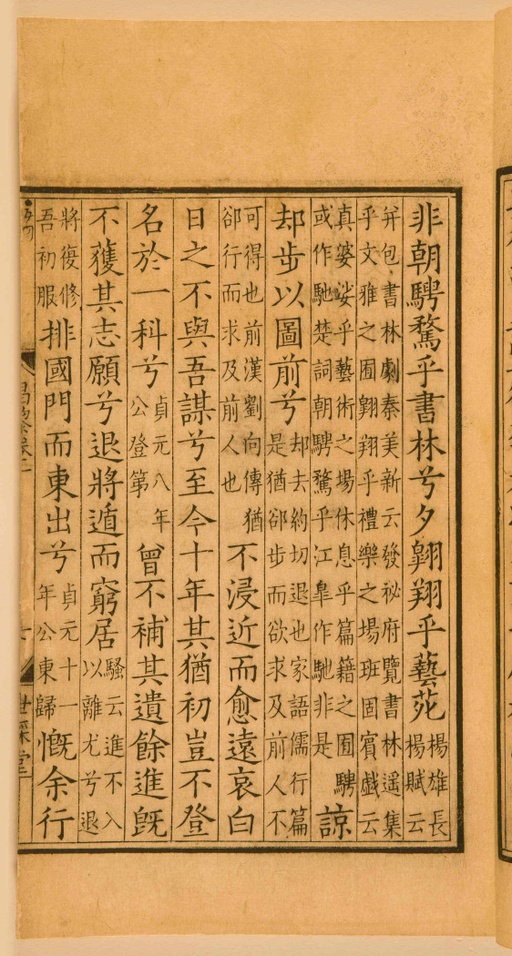 非朝騁騖乎書林兮夕翺翔乎藝苑楊雄長
楊賦云
并包書林劇秦美新云發祕府覽書林遥集
乎文雅之囿翺翔乎禮樂之場班固賓戲云
真婆娑乎藝術之場休息乎篇籍之囿騁
或作馳楚詞朝騁騖乎江臯作馳非是諒
却步以圖前兮却去約切退也家語儒行篇
是猶卻步而欲求及前人不
可得也前漢劉向傳猶
卻行而求及前人也不浸近而愈遠哀白
日之不與吾謀兮至今十年其猶初豈不登
名於一科兮貞元八年
公登第曾不補其遺餘進旣
不獲其志願兮退將遁而窮居騷云進不入
以離尤兮退
將復修
吾初服排國門而東出兮貞元十一
年公東歸慨余行
世綵堂